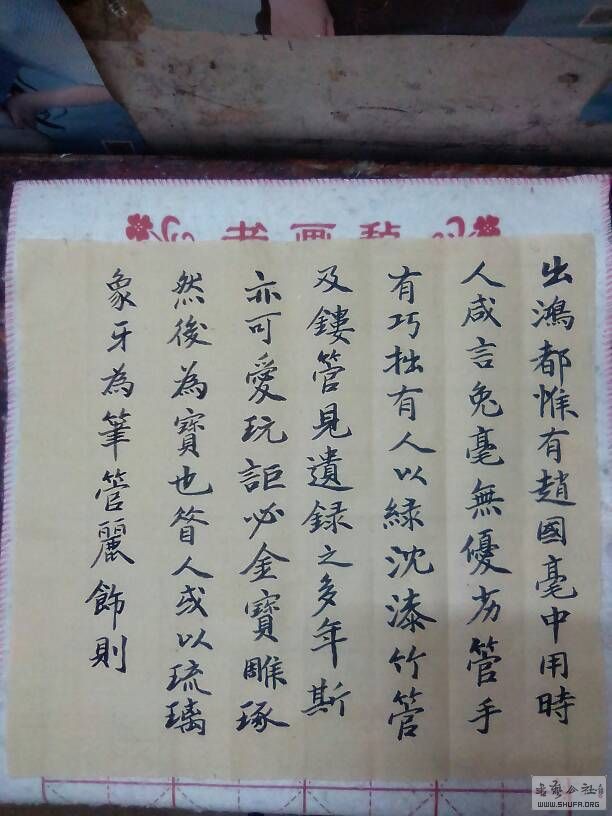 出鴻都惟有趙國毫中用時
人咸言兔毫無優劣管手
有巧拙有人以緑沈漆竹管
及鏤管見遺録之多年斯
亦可愛玩詎必金寶雕琢
然後為寶也昝人或以琉璃
象牙為筆管麗飾則
書画毡
書法公社
WWW.SHUFA.ORG